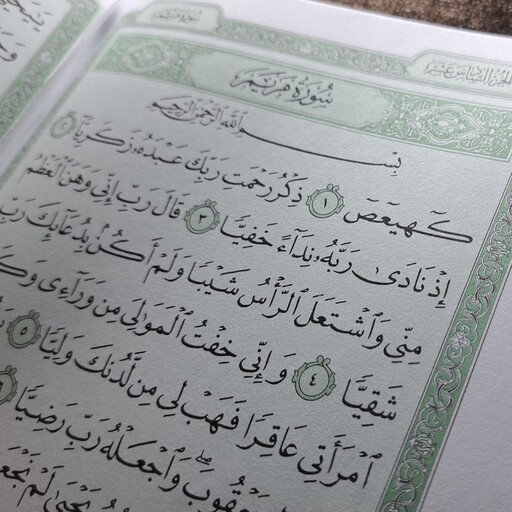 سورة مريم
الجزء السادس عشر
سُورَةُ مَرْيَمَ
بِسْمِ اللَّهِ الرَّحْمَٰنِ الرَّحِيمِ
كٓهيعٓصٓ ١ ذِكْرُ رَحْمَتِ رَبِّكَ عَبْدَهُۥ زَكَرِيَّآ ٢
إِذْ نَادَىٰ رَبَّهُۥ نِدَآءً خَفِيًّا ٣ قَالَ رَبِّ إِنِّي وَهَنَ ٱلْعَظْمُ
مِنِّي وَٱشْتَعَلَ ٱلرَّأْسُ شَيْبًا وَلَمْ أَكُنۢ بِدُعَآئِكَ رَبِّ
شَقِيًّا ٤ وَإِنِّي خِفْتُ ٱلْمَوَٰلِيَ مِن وَرَآءِي وَكَ
ٱمْرَأَتِي عَاقِرًا فَهَبْ لِي مِن لَّدُنكَ وَلِيًّا ٥
يَعْقُوبَ ۖ وَٱجْعَلْهُ رَبِّ رَضِيًّا ٦
يَحْيَىٰ لَمْ نَجْعَل